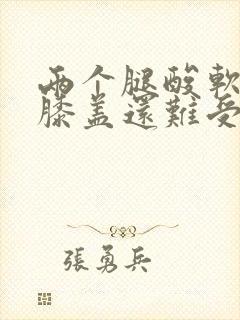 两个腿酸軟
膝盖還難受
張勇兵